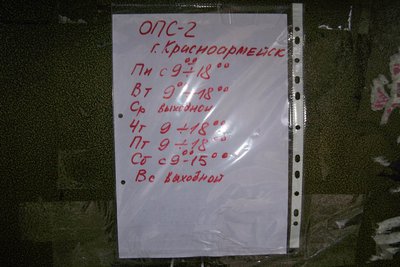 ОПС-2
г. Красноармейск
Пн с 9⁰⁰÷18⁰⁰
Вт 9⁰÷18⁰⁰
Ср выходной
Чт 9÷18⁰⁰
Пт 9÷18⁰⁰
Сб с 9-15⁰⁰
Вс выходной